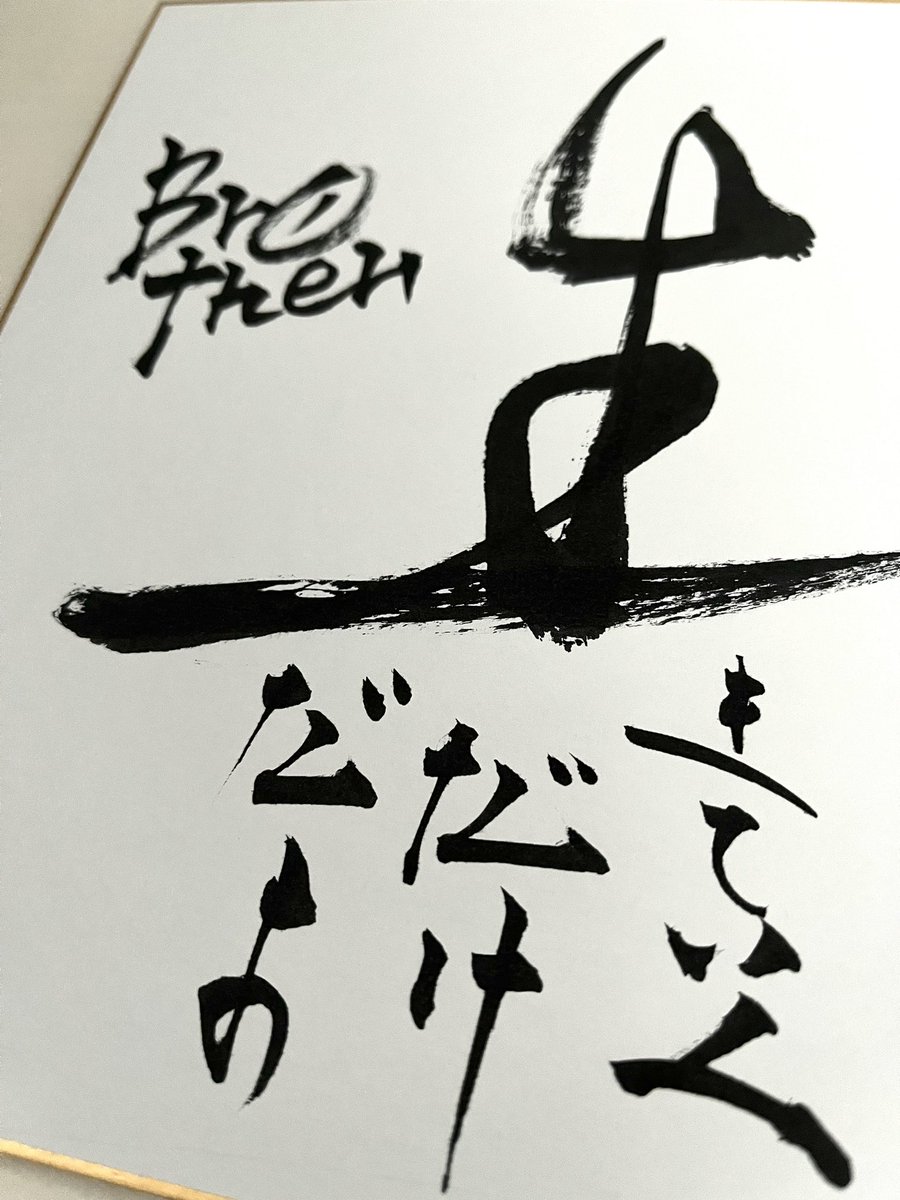 Bro
ther
生
きていく
だけ
だよ